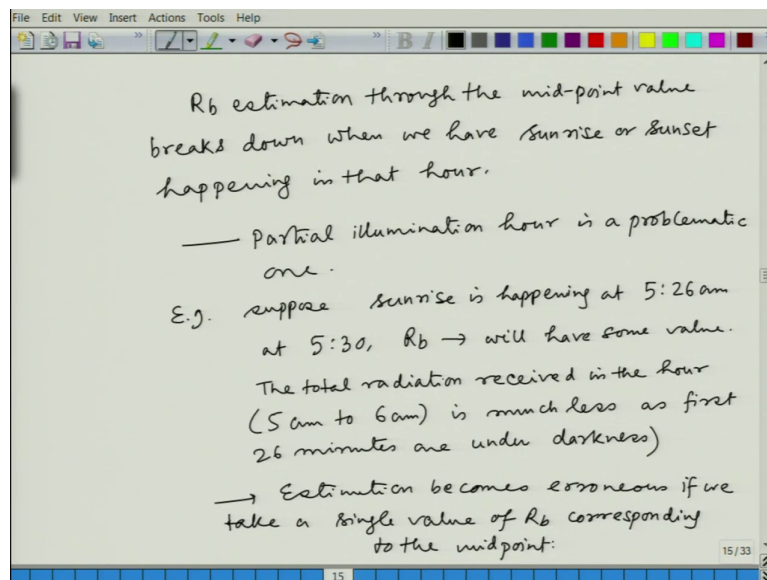 File Edit View Insert Actions Tools Help
B I
Rb estimation through the mid-point value
breaks down when we have sunrise or sunset
happening in that hour.
— Partial illumination hour is a problematic
one.
E.g. suppose sunrise is happening at 5:26am
at 5:30, Rb → will have some value.
The total radiation received in the hour
(5am to 6am) is much less as first
26 minutes are under darkness)
→ Estimation becomes erroneous if we
take a single value of Rb corresponding
to the midpoint:
15/33
15